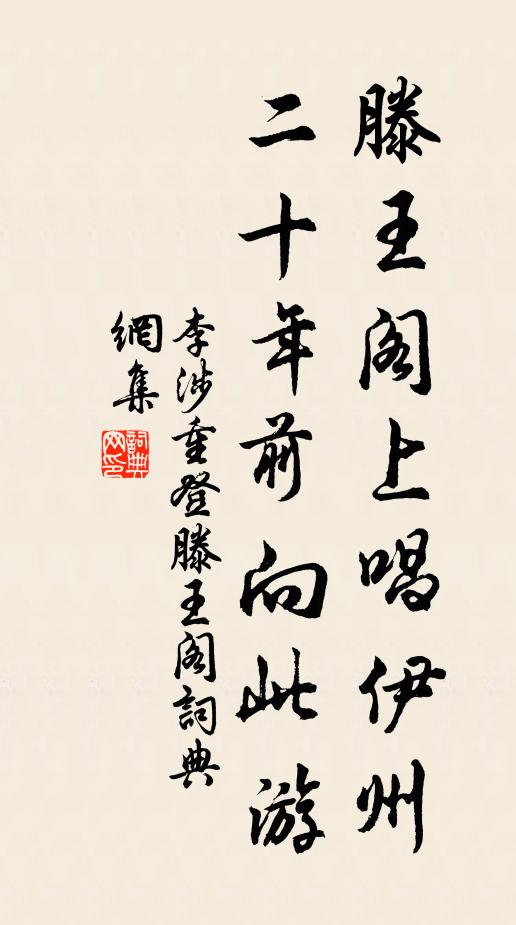 滕王阁上唱伊州
二十年前向此游
李涉重登滕王阁詞典
網集
詞典
网印